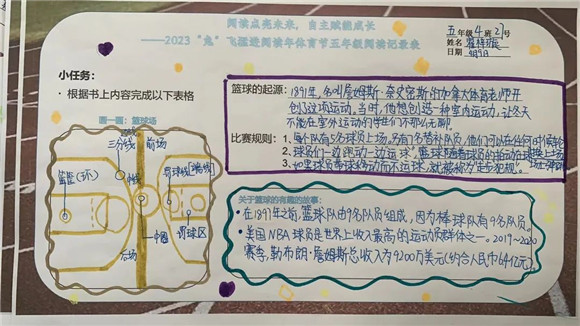 阅读点亮未来，自主赋能成长
——2023“兔”飞猛进阅读年体育节五年级阅读记录表
五年级4班27号
姓名
日期
小任务：
· 根据书上内容完成以下表格
画一画：篮球场
三分线
前场
篮筐(环)
中线
罚球区
中圈
后场
篮球的起源：1891年，名叫詹姆斯·奈史密斯的加拿大体育老师开
创了这项运动。当时，他想创造一种室内运动，让冬天
不能在室外运动的学生们不那么无聊。
比赛规则：1、每个队有5名球员上场。另有7名替补队员，他们可以在任何时候轮
2、球员们一边跑动一边运球，篮球随着球员的拍动在球场上
3、如果球员带球移动而不运球，就被称为走步犯规。
关于篮球的有趣的故事：
· 在1897年之前，篮球队由9名队员组成，因为棒球队有9名队员。
· 美国NBA球员是世界上收入最高的运动员群体之一。2019～2020
赛季，勒布朗·詹姆斯总收入为9200万美元(约合人民币6.4亿元)。